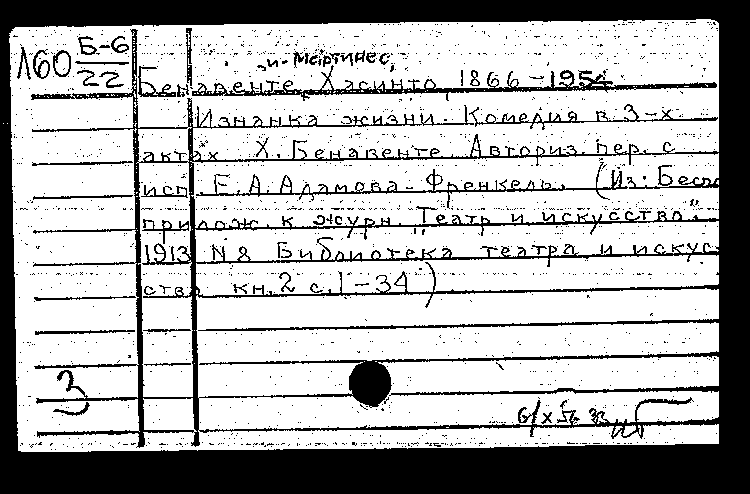 160 Б-6
22
„и-Мартинес„
Бенавенте, Хасинто, 1866-1954
Изнанка жизни. Комедия в 3-х
актах Х. Бенавенте. Авториз. пер. с
исп. Е.А. Адамова-Френкель. (Из:
прилож. к журн „Театр и искусство".
1913 N 8 Библиотека театра и искус
ства кн. 2 с. 1-34)
З